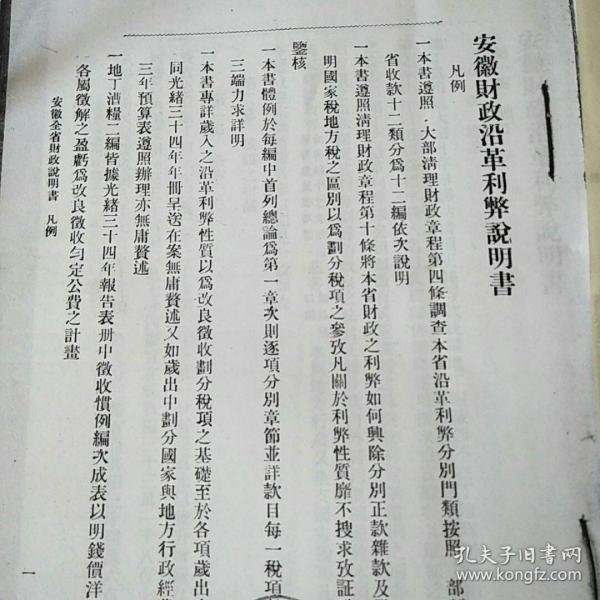 安徽財政沿革利弊說明書
凡例
一本書遵照 大部清理財政章程第四條調查本省沿革利弊分別門類按照 部
省收款十二類分爲十二編依次說明
一本書遵照清理財政章程第十條將本省財政之利弊如何興除分別正款雜款及
明國家稅地方稅之區別以爲劃分稅項之參攷凡關於利弊性質靡不搜求攷証
鑒核
一本書體例於每編中首列總論爲第一章次則逐項分別章節並詳款目每一稅項
三端力求詳明
一本書專詳歲入之沿革利弊性質以爲改良徵收劃分稅項之基礎至於各項歲出
同光緒三十四年年冊呈送在案無庸贅述又如歲出中劃分國家與地方行政經
三年預算表遵照辦理亦無庸贅述
一地丁漕糧二編皆據光緒三十四年報告表册中徵收慣例編次成表以明錢價洋
各屬徵解之盈虧爲改良徵收勻定公費之計畫
安徽全省財政說明書 凡例
一
孔夫子旧书网
www.kongfz.com